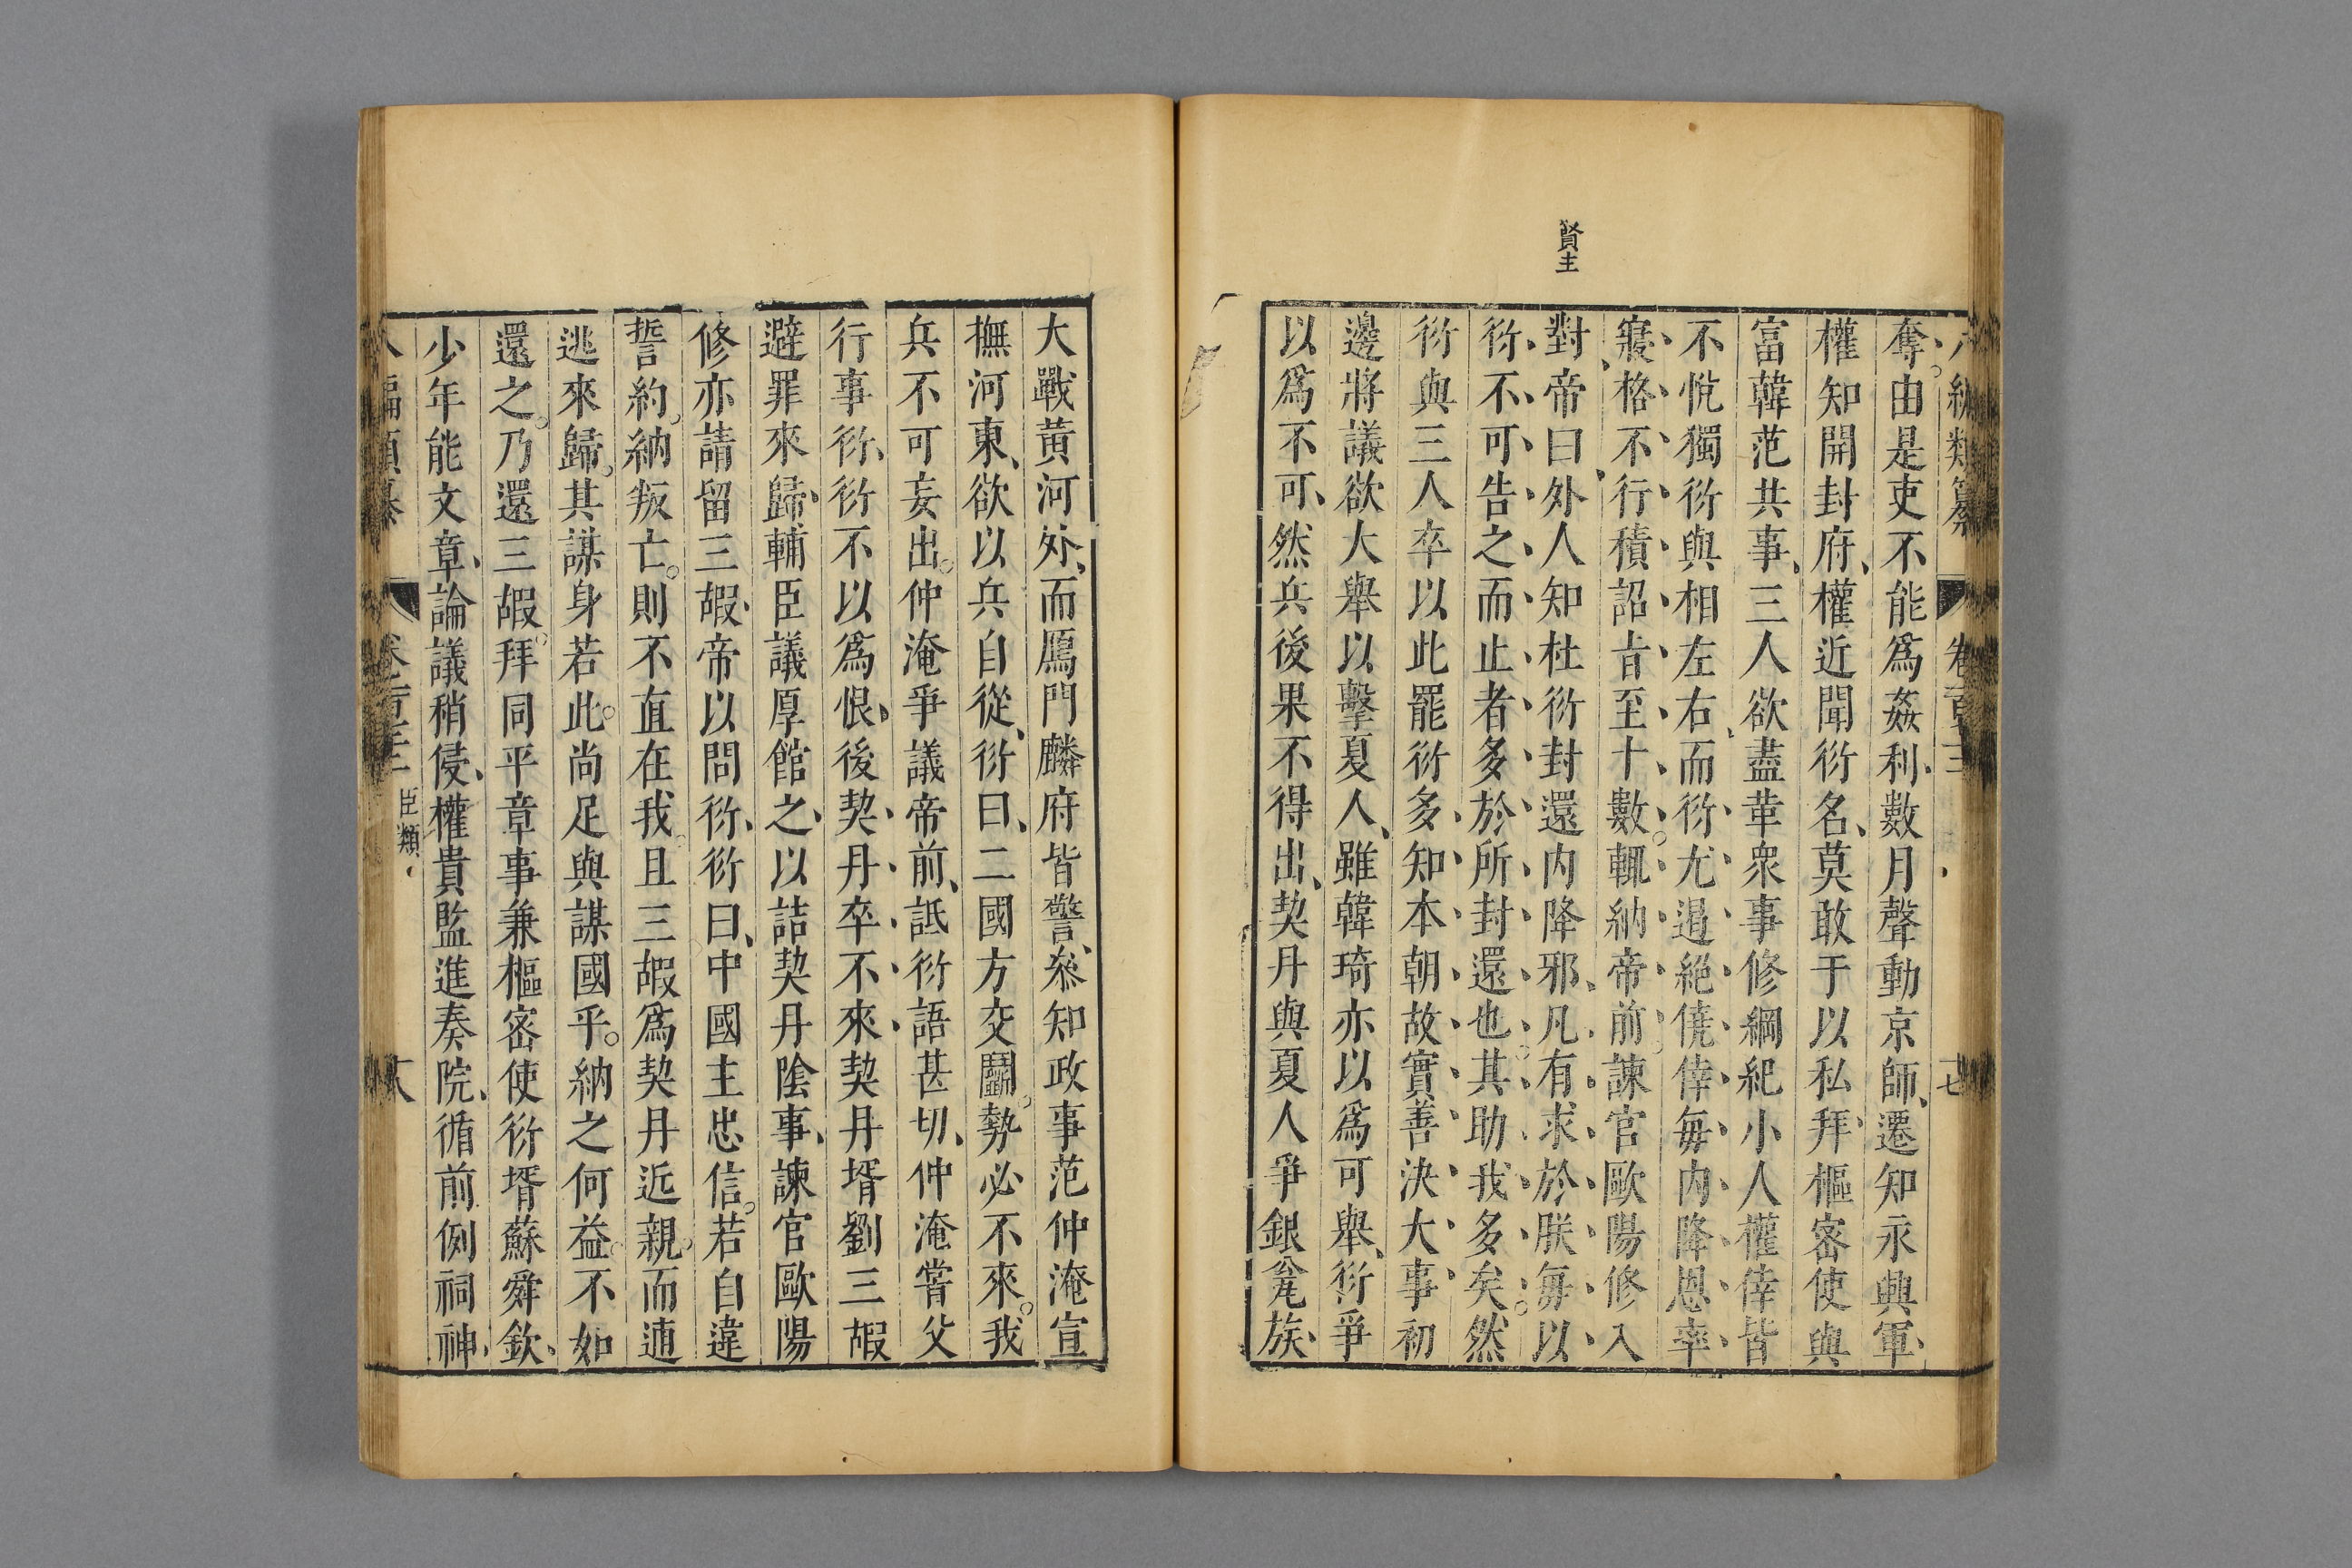 賢主
奪由是吏不能爲姦利數月聲動京師遷知永興軍
權知開封府權近聞衍名莫敢于以私拜樞密使與
富韓范共事三人欲盡革衆事修綱紀小人權倖皆
不悅獨衍與相左右而衍尤遏絕僥倖每内降恩率
寢格不行積詔旨至十數輒納帝前諫官歐陽修入
對帝曰外人知杜衍封還内降邪凡有求於朕每以
衍不可告之而止者多於所封還也其助我多矣然
衍與三人卒以此罷衍多知本朝故實善決大事初
邊將議欲大舉以擊夏人雖韓琦亦以爲可舉衍爭
以爲不可然兵後果不得出契丹與夏人爭銀瓮族
大戰黄河外而鴈門麟府皆警叅知政事范仲淹宣
撫河東欲以兵自從衍曰二國方交鬭勢必不來我
兵不可妄出仲淹爭議帝前詆衍語甚切仲淹嘗父
行事衍衍不以爲恨後契丹卒不來契丹壻劉三嘏
避罪來歸輔臣議厚館之以詰契丹陰事諫官歐陽
修亦請留三嘏帝以問衍衍曰中國主忠信若自違
誓約納叛亡則不直在我且三嘏爲契丹近親而逋
逃來歸其謀身若此尚足與謀國乎納之何益不如
還之乃還三嘏拜同平章事兼樞密使衍壻蘇舜欽
少年能文章論議稍侵權貴監進奏院循前例祠神
臣類